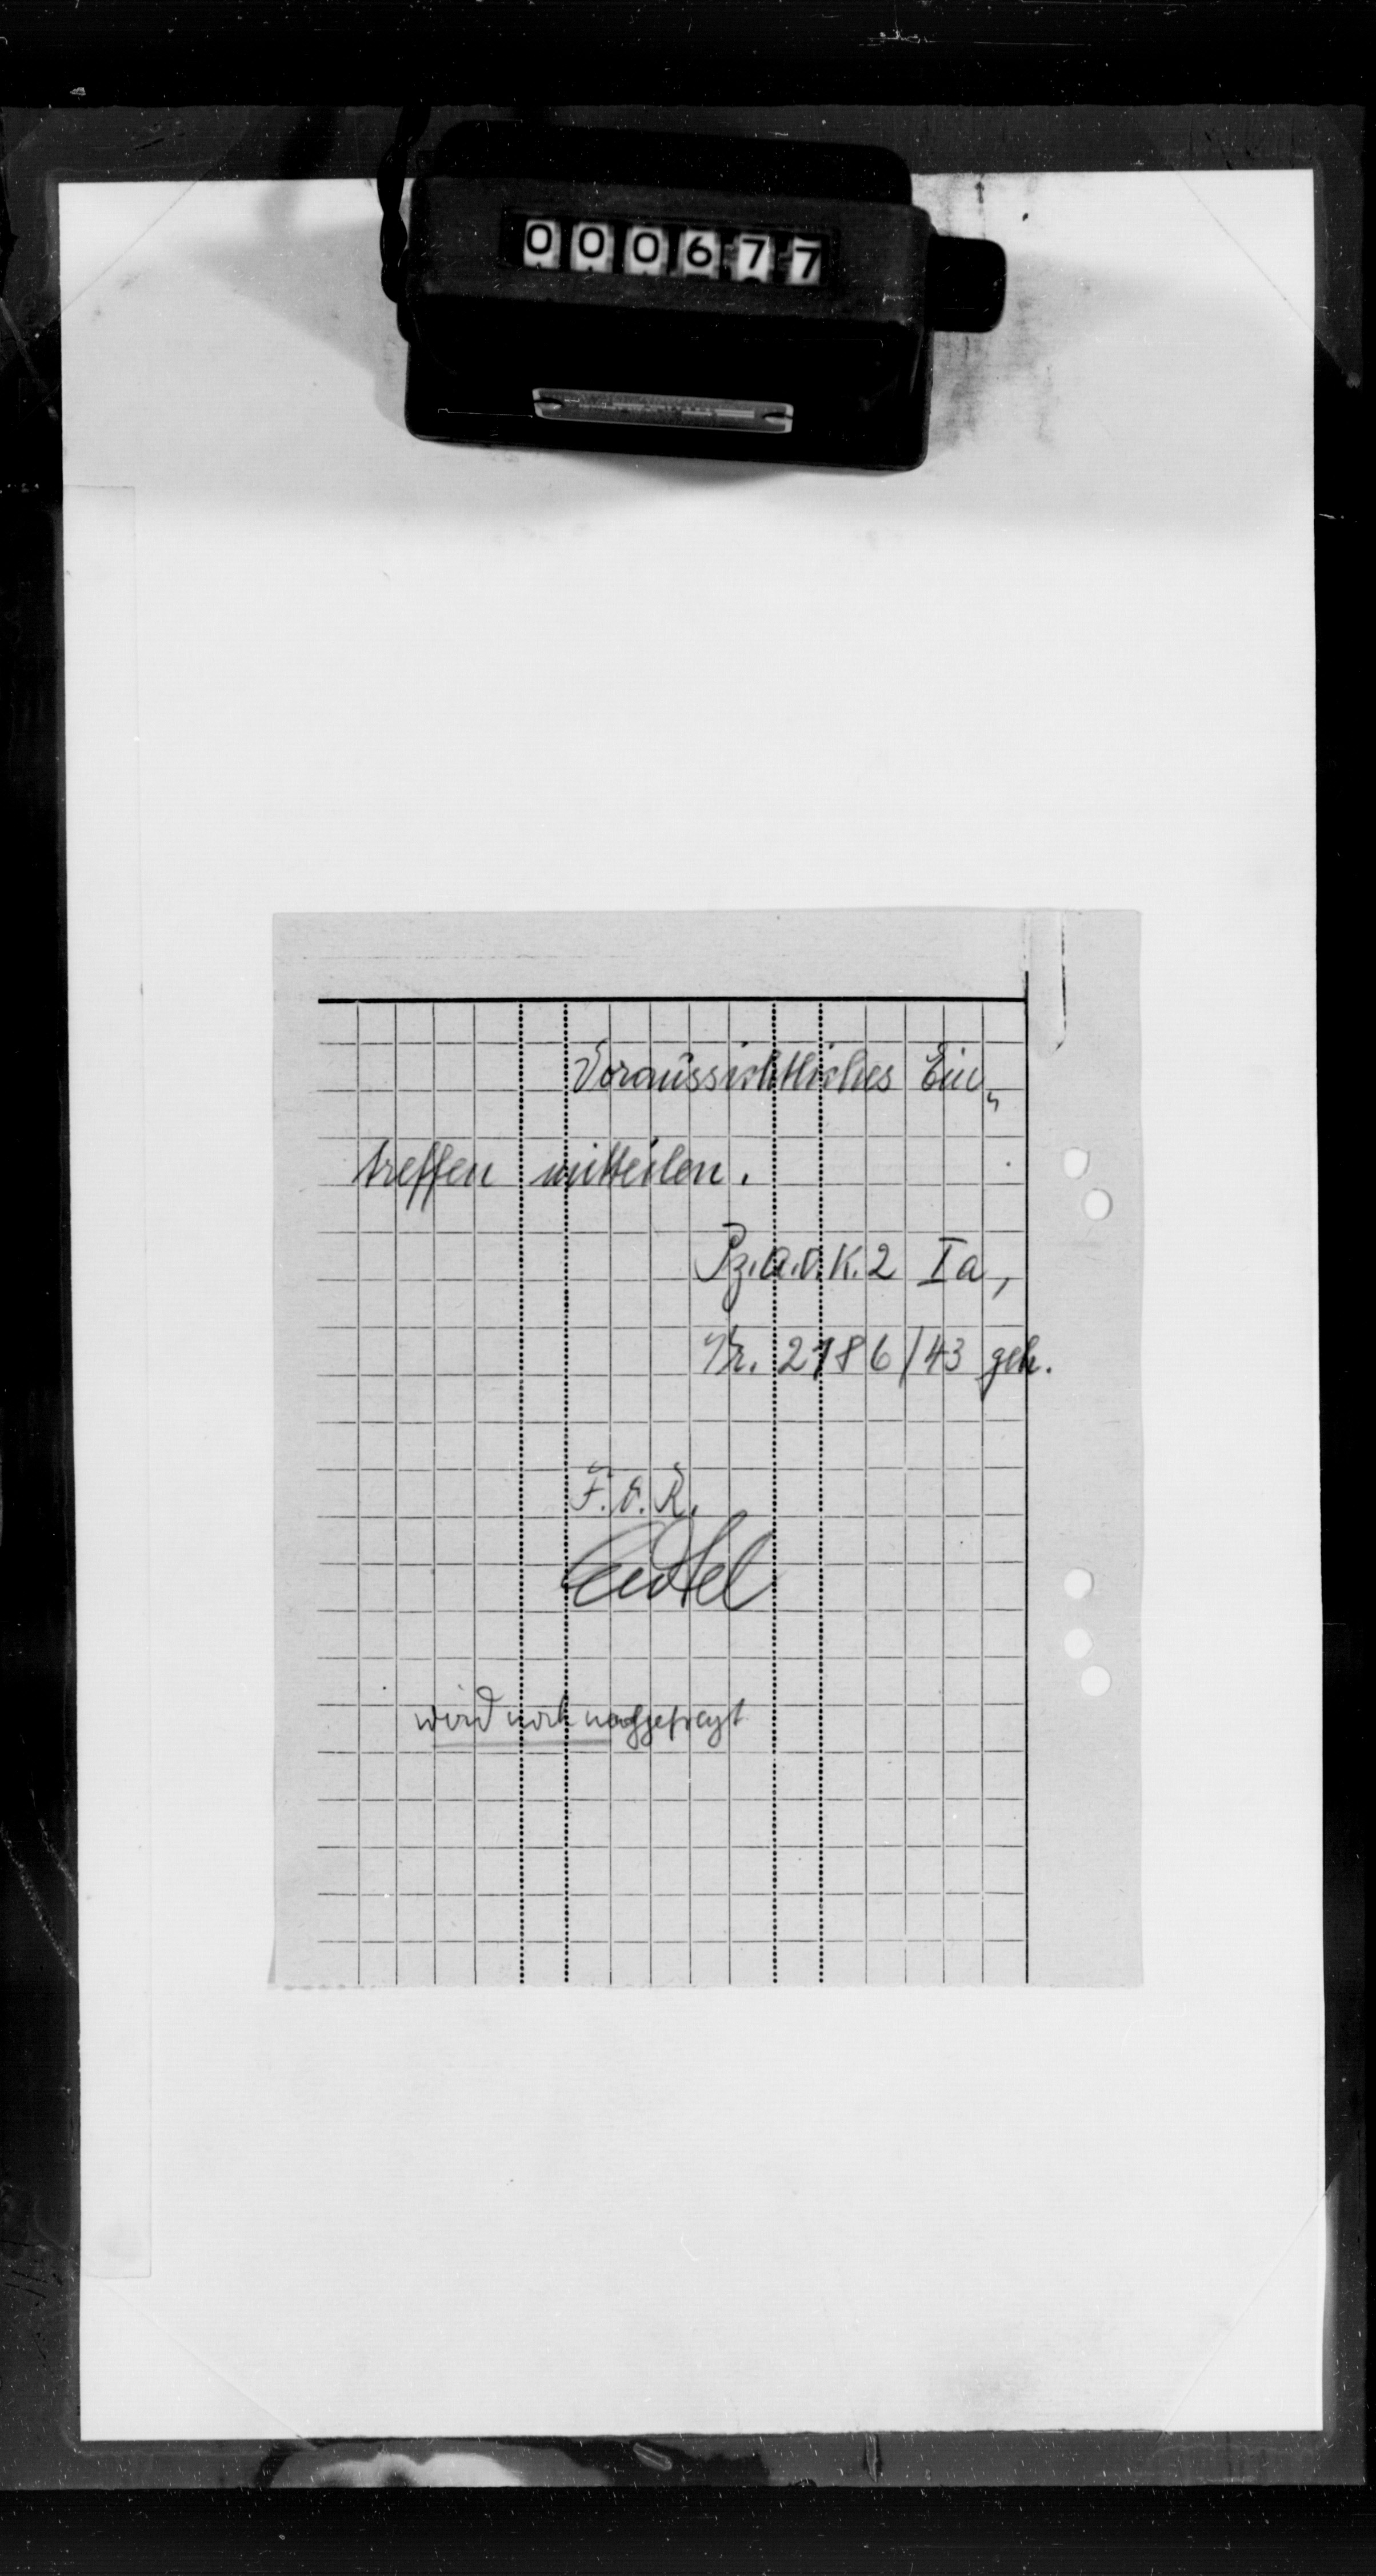 000677
Voraussichtliches Ein-
treffen mitteilen.
Pz.A.O.K.2 Ia,
Nr. 2186/43 geh.
F.d.R.
wird noch nachgefragt